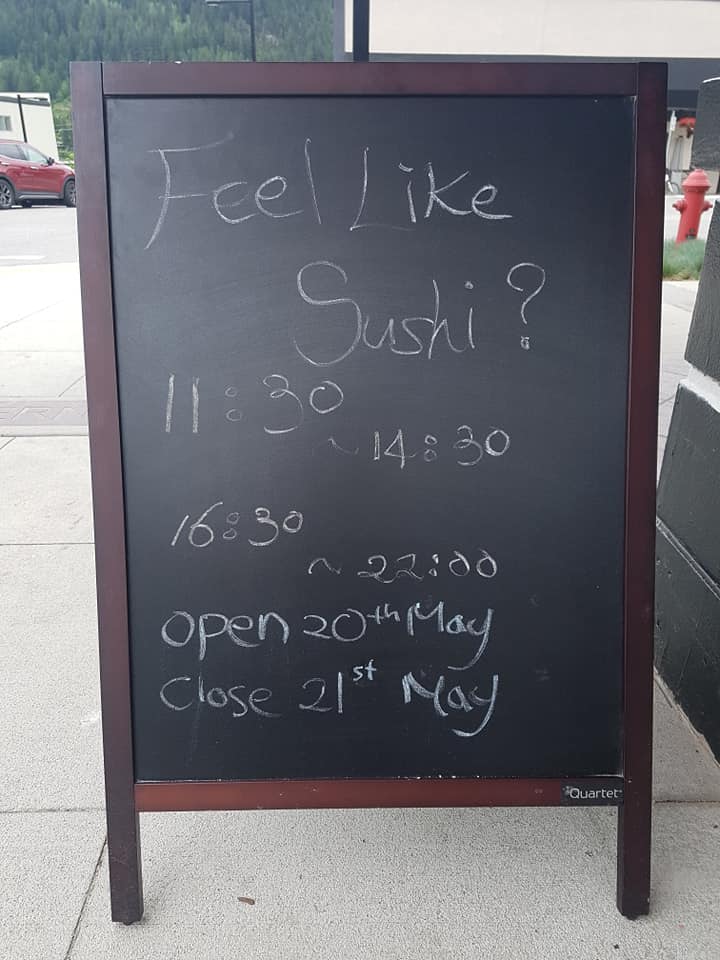 Feel Like
Sushi?
11:30
~ 14:30
16:30
~ 22:00
Open 20th May
Close 21st May
Quartet